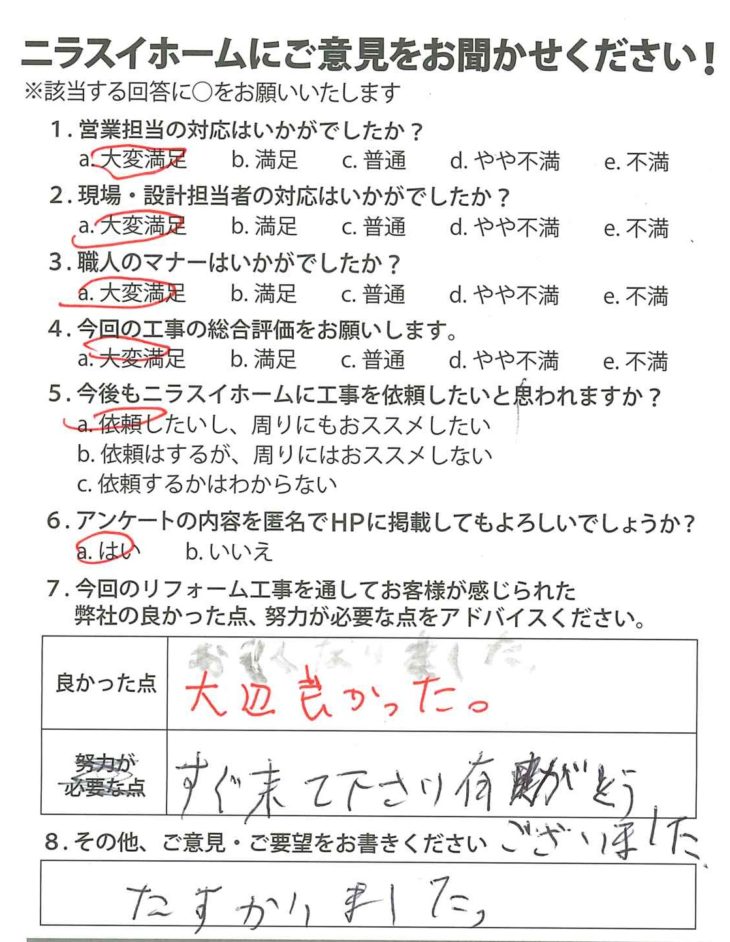 ニラスイホームにご意見をお聞かせください！
※該当する回答に○をお願いいたします
1. 営業担当の対応はいかがでしたか？
a. 大変満足 b. 満足 c. 普通 d. やや不満 e. 不満
2. 現場・設計担当者の対応はいかがでしたか？
a. 大変満足 b. 満足 c. 普通 d. やや不満 e. 不満
3. 職人のマナーはいかがでしたか？
a. 大変満足 b. 満足 c. 普通 d. やや不満 e. 不満
4. 今回の工事の総合評価をお願いします。
a. 大変満足 b. 満足 c. 普通 d. やや不満 e. 不満
5. 今後もニラスイホームに工事を依頼したいと思われますか？
a. 依頼したいし、周りにもおススメしたい
b. 依頼はするが、周りにはおススメしない
c. 依頼するかはわからない
6. アンケートの内容を匿名でHPに掲載してもよろしいでしょうか？
a. はい b. いいえ
7. 今回のリフォーム工事を通してお客様が感じられた
弊社の良かった点、努力が必要な点をアドバイスください。
良かった点
大辺良かった。
努力が
必要な点
すぐ来て下さり有がとう
ございました
8. その他、ご意見・ご要望をお書きください
たすかりました。